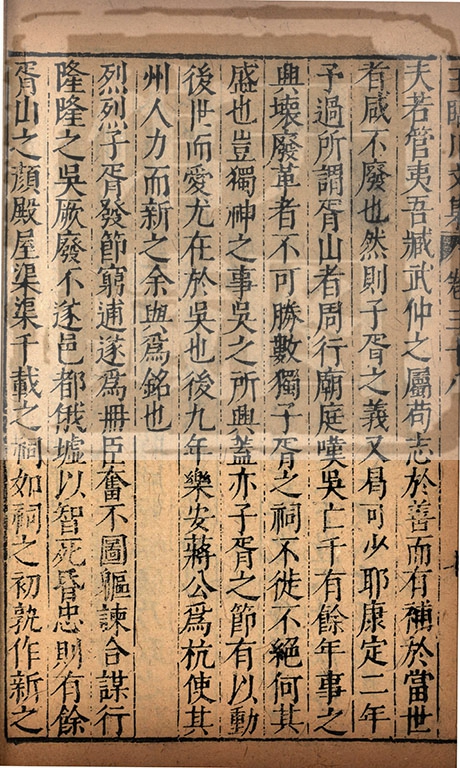 王臨川文集 卷三十八
夫若管夷吾臧武仲之屬苟志於善而有補於當世
者咸不廢也然則子胥之義又曷可少耶康定二年
予過所謂胥山者周行廟庭嘆吳亡千有餘年事之
興壞廢革者不可勝數獨子胥之祠不徙不絕何其
盛也豈獨神之事吳之所興蓋亦子胥之節有以動
後世而愛尤在於吳也後九年樂安蔣公爲杭使其
州人力而新之余與爲銘也
烈烈子胥發節窮逋遂爲册臣奮不圖軀諫合謀行
隆隆之吳厥廢不遂邑都俄墟以智死昏忠則有餘
胥山之顏殿屋渠渠千載之祠如祠之初孰作新之